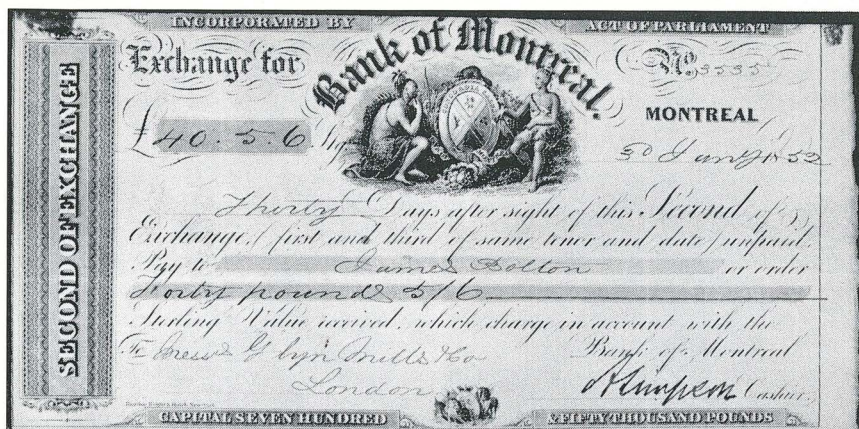 INCORPORATED BY ACT OF PARLIAMENT
SECOND OF EXCHANGE
Exchange for Bank of Montreal. No. 3535
£ 40.5.6 Stg MONTREAL
30 Jany 1852
Thirty Days after sight of this Second of
Exchange, (first and third of same tenor and date) unpaid.
Pay to James Bolton or order
Forty pounds 5/6
Sterling Value received, which charge in account with the
To Messrs Glyn Mills & Co Bank of Montreal
London A Simpson Cashier
CAPITAL SEVEN HUNDRED & FIFTY THOUSAND POUNDS